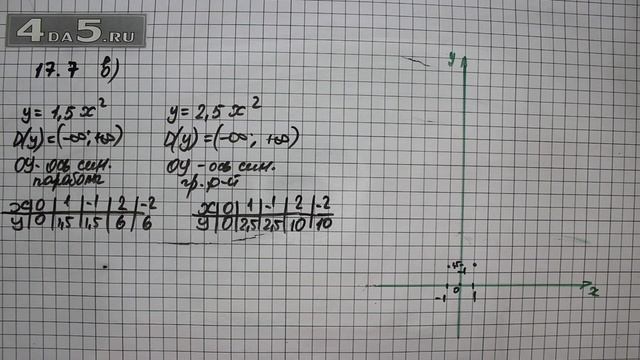 4DA5.RU
17.7 в)
y = 1,5 x²
D(y) = (-∞; +∞)
OY - ось сим.
парабола
x 0 1 -1 2 -2
y 0 1,5 1,5 6 6
y = 2,5 x²
D(y) = (-∞; +∞)
OY - ось сим.
гр. ф-й
x 0 1 -1 2 -2
y 0 2,5 2,5 10 10
y
-1 0 1 x